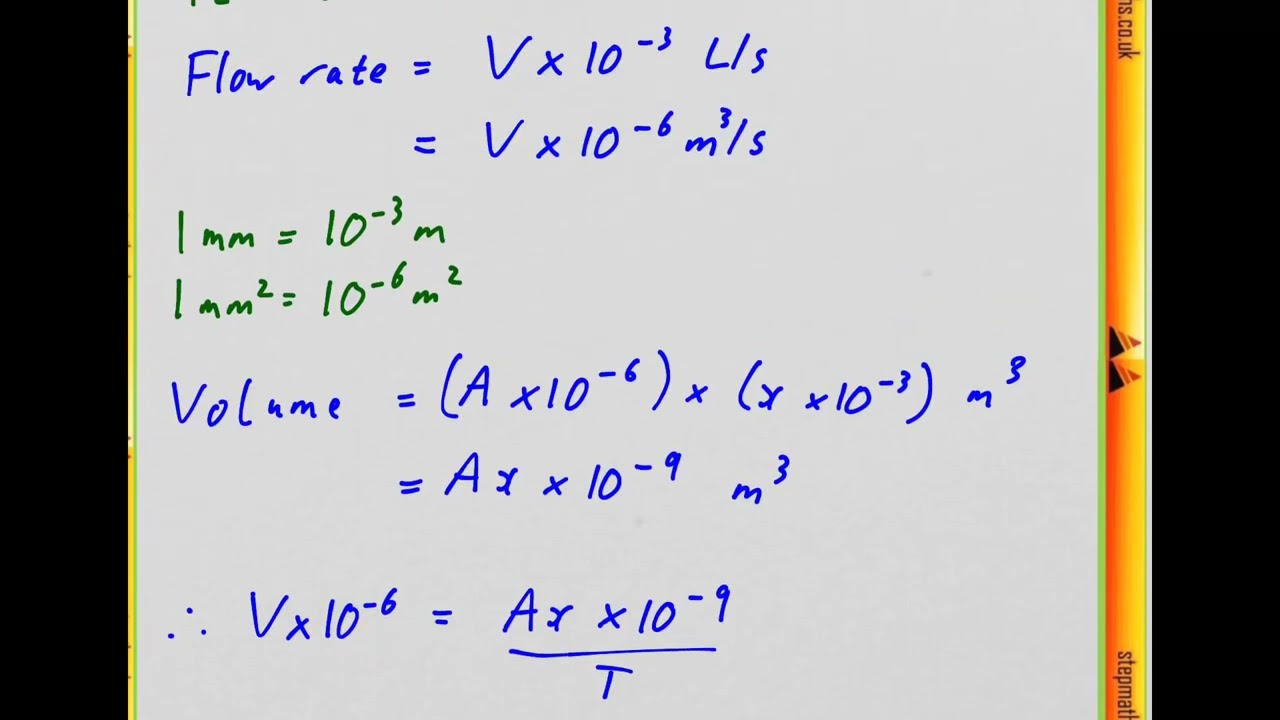 Flow rate = V × 10⁻³ L/s
= V × 10⁻⁶ m³/s
1 mm = 10⁻³ m
1 mm² = 10⁻⁶ m²
Volume = (A × 10⁻⁶) × (x × 10⁻³) m³
= Ax × 10⁻⁹ m³
∴ V × 10⁻⁶ = Ax × 10⁻⁹
T
ns.co.uk
stepmath